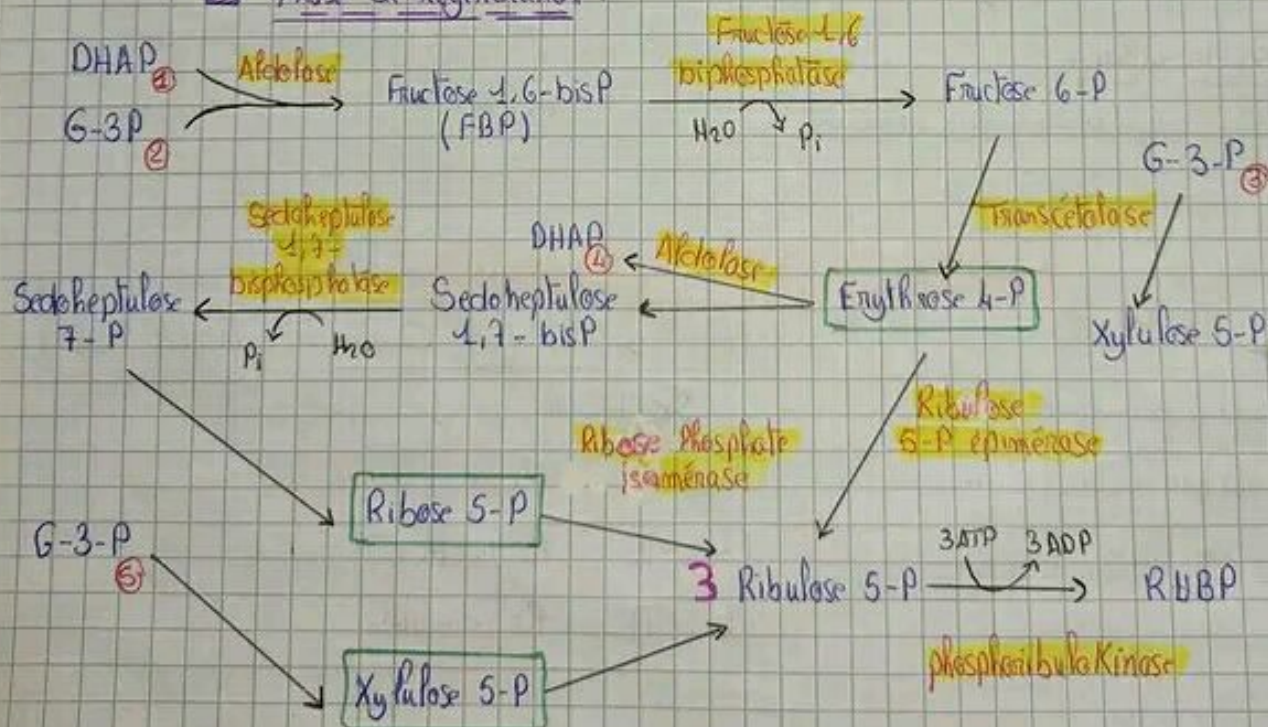 Phase de Régénération:
DHAP ①
Aldolase
G-3P ②
Fructose 1,6-bisP
(FBP)
Fructose 1,6
biphosphatase
H2O
Pi
Fructose 6-P
G-3-P ③
Transcétolase
Erythrose 4-P
Xylulose 5-P
Aldolase
DHAP ④
Sedoheptulose
1,7-bisP
Sedoheptulose
1,7-
bisphosphatase
Pi
H2O
Sedoheptulose
7-P
Ribulose
5-P épimérase
Ribose Phosphate
isomérase
Ribose 5-P
G-3-P ⑤
Xylulose 5-P
3 Ribulose 5-P
3ATP
3ADP
RUBP
phosphoribuloKinase